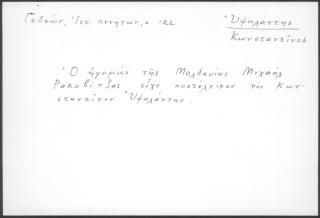 Γεδεών, Ἱστ. πενήτων, σ 122
Ὑψηλάντης
Κωνσταντῖνος
Ὁ ἡγεμὼν τῆς Μολδαυίας Μιχαὴλ
Ρακοβίτζας εἶχε ποστέλνικον τὸν Κων-
σταντῖνον Ὑψηλάντην.